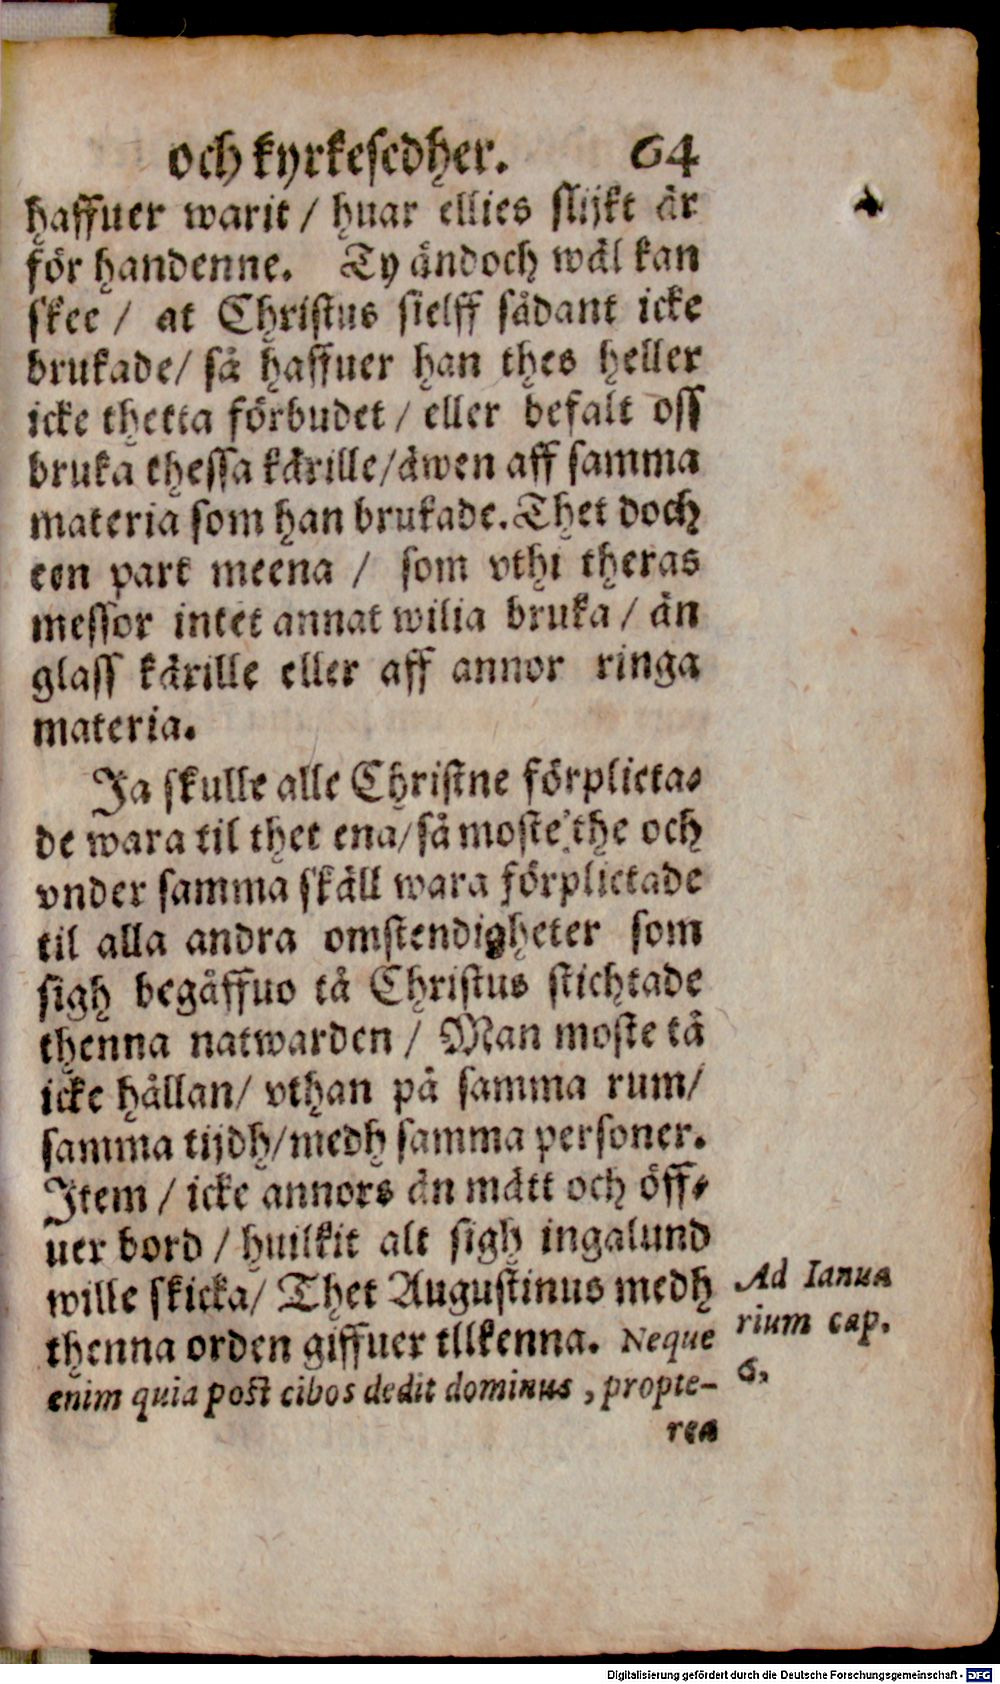 och kyrkesedher. 64
haffuer warit / huar ellies slijkt är
för handenne. Ty ändoch wäl kan
skee / at Christus sielff sådant icke
brukade / så haffuer han thes heller
icke thetta förbudet / eller befalt oss
bruka thessa kärille / äwen aff samma
materia som han brukade. Thet doch
een part meena / som vthi theras
messor intet annat wilia bruka / än
glass kärille eller aff annor ringa
materia.
Ja skulle alle Christne förplicta-
de wara til thet ena / så moste the och
vnder samma skäll wara förplictade
til alla andra omstendigheter som
sigh begåffuo tå Christus stichtade
thenna natwarden / Man moste tå
icke hållan / vthan på samma rum /
samma tijdh / medh samma personer.
Item / icke annors än mätt och öff-
uer bord / huilkit alt sigh ingalund
wille skicka / Thet Augustinus medh
thenna orden giffuer tllkenna. Neque
enim quia post cibos dedit dominus, propte-
rea
Ad Ianua
rium cap.
6.
Digitalisierung gefördert durch die Deutsche Forschungsgemeinschaft - DFG